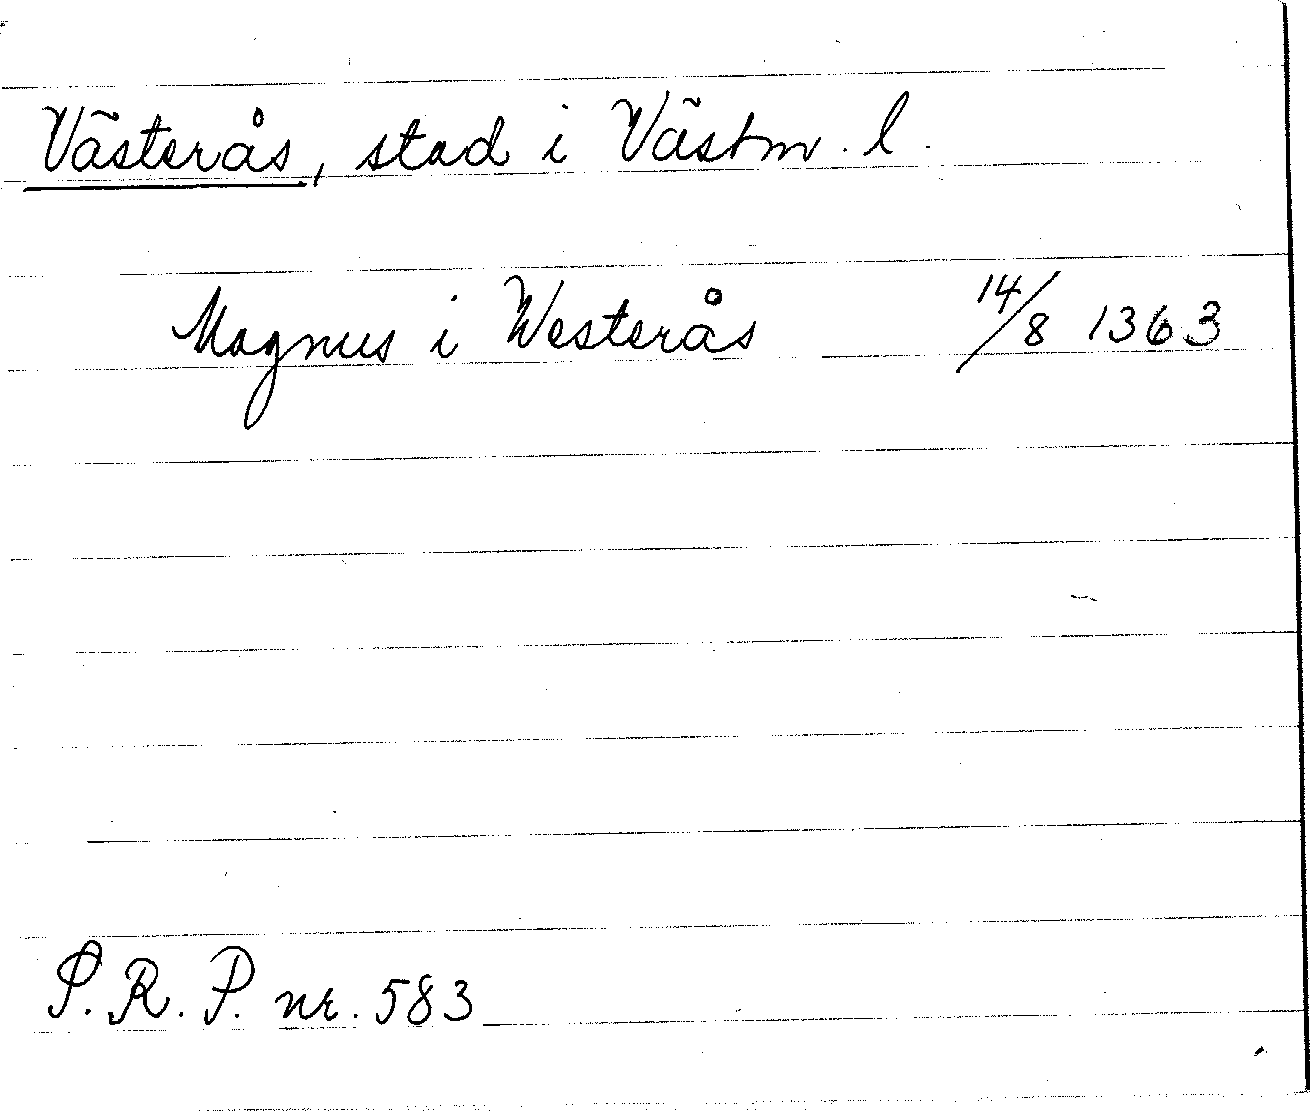 Västerås, stad i Västm. l.
Magnus i Westerås 14/8 1363
S.R.P. nr. 583